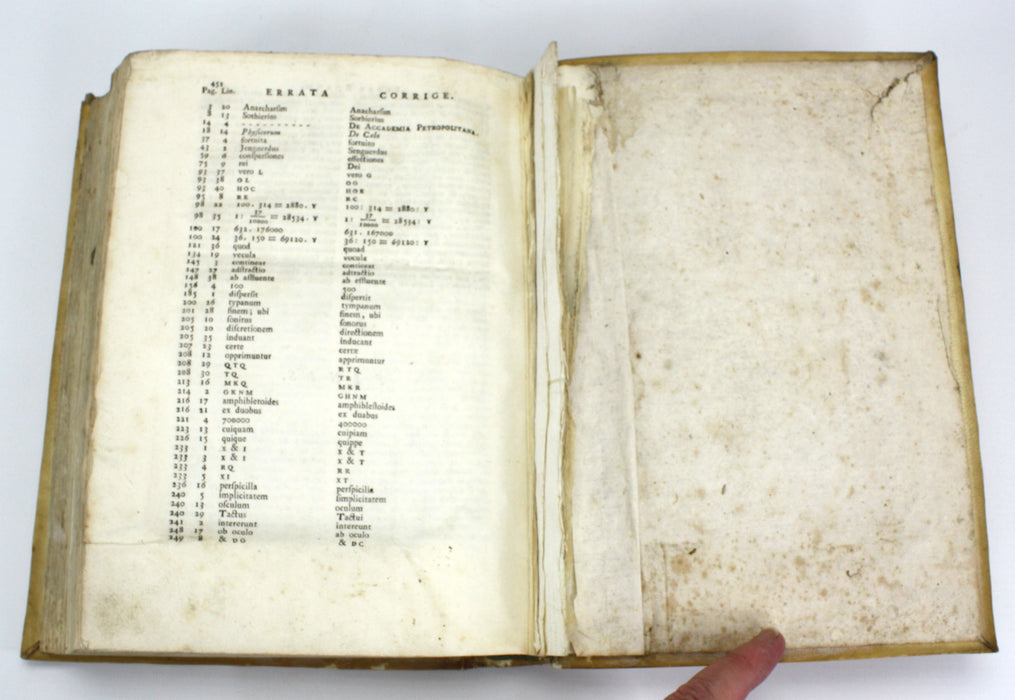 452
Pag. Lin. ERRATA CORRIGE.
3 20 Anarcharsim Anacharsim
8 13 Sothierius Sorbierius
14 4 - - - - - - - - - - DE ACCADEMIA PETROPOLITANA.
18 14 Physicorum De Cælo
37 4 fortuita fortuito
43 2 Jenguerdus Senguerdus
59 6 conspersiones effectiones
75 9 rei Dei
93 37 vero L vero G
93 38 OL OG
93 40 HOC HOR
95 8 RE RC
98 22 100. 314 = 2880. Y 100: 314 = 2880: Y
98 35 1: 37/10000 = 28534. Y 1: 37/10000 = 28534: Y
100 17 632. 176000 632. 167000
100 24 36. 150 = 69120. Y 36: 150 = 69120: Y
121 36 quod quoad
134 19 vecula vocula
145 3 contineat contineat
147 27 adstractio adtractio
148 38 ab affluente ab effluente
156 4 100 500
185 1 dispersit dispertit
200 26 typanum tympanum
201 28 sinem; ubi sinem, ubi
205 10 sonitus sonorus
205 20 discretionem directionem
205 35 induant inducant
207 23 certe certe
208 12 opprimuntur apprimuntur
208 29 QTQ RTQ
208 30 TQ TR
213 16 MKQ MKR
214 2 GKNM GHNM
216 17 amphibletoides amphiblestoides
216 21 ex duobus ex duabus
221 4 700000 400000
223 13 cuiquam cuipiam
226 15 quique quippe
233 1 X & I X & T
233 3 X & I X & T
233 4 RQ RR
233 5 XI XT
236 16 perspicilla perspicilla
240 5 implicitatem simplicitatem
240 13 osculum oculum
240 29 Tactus Tactui
241 2 intererunt intereunt
248 17 ob oculo ab oculo
249 8 & DO & DC